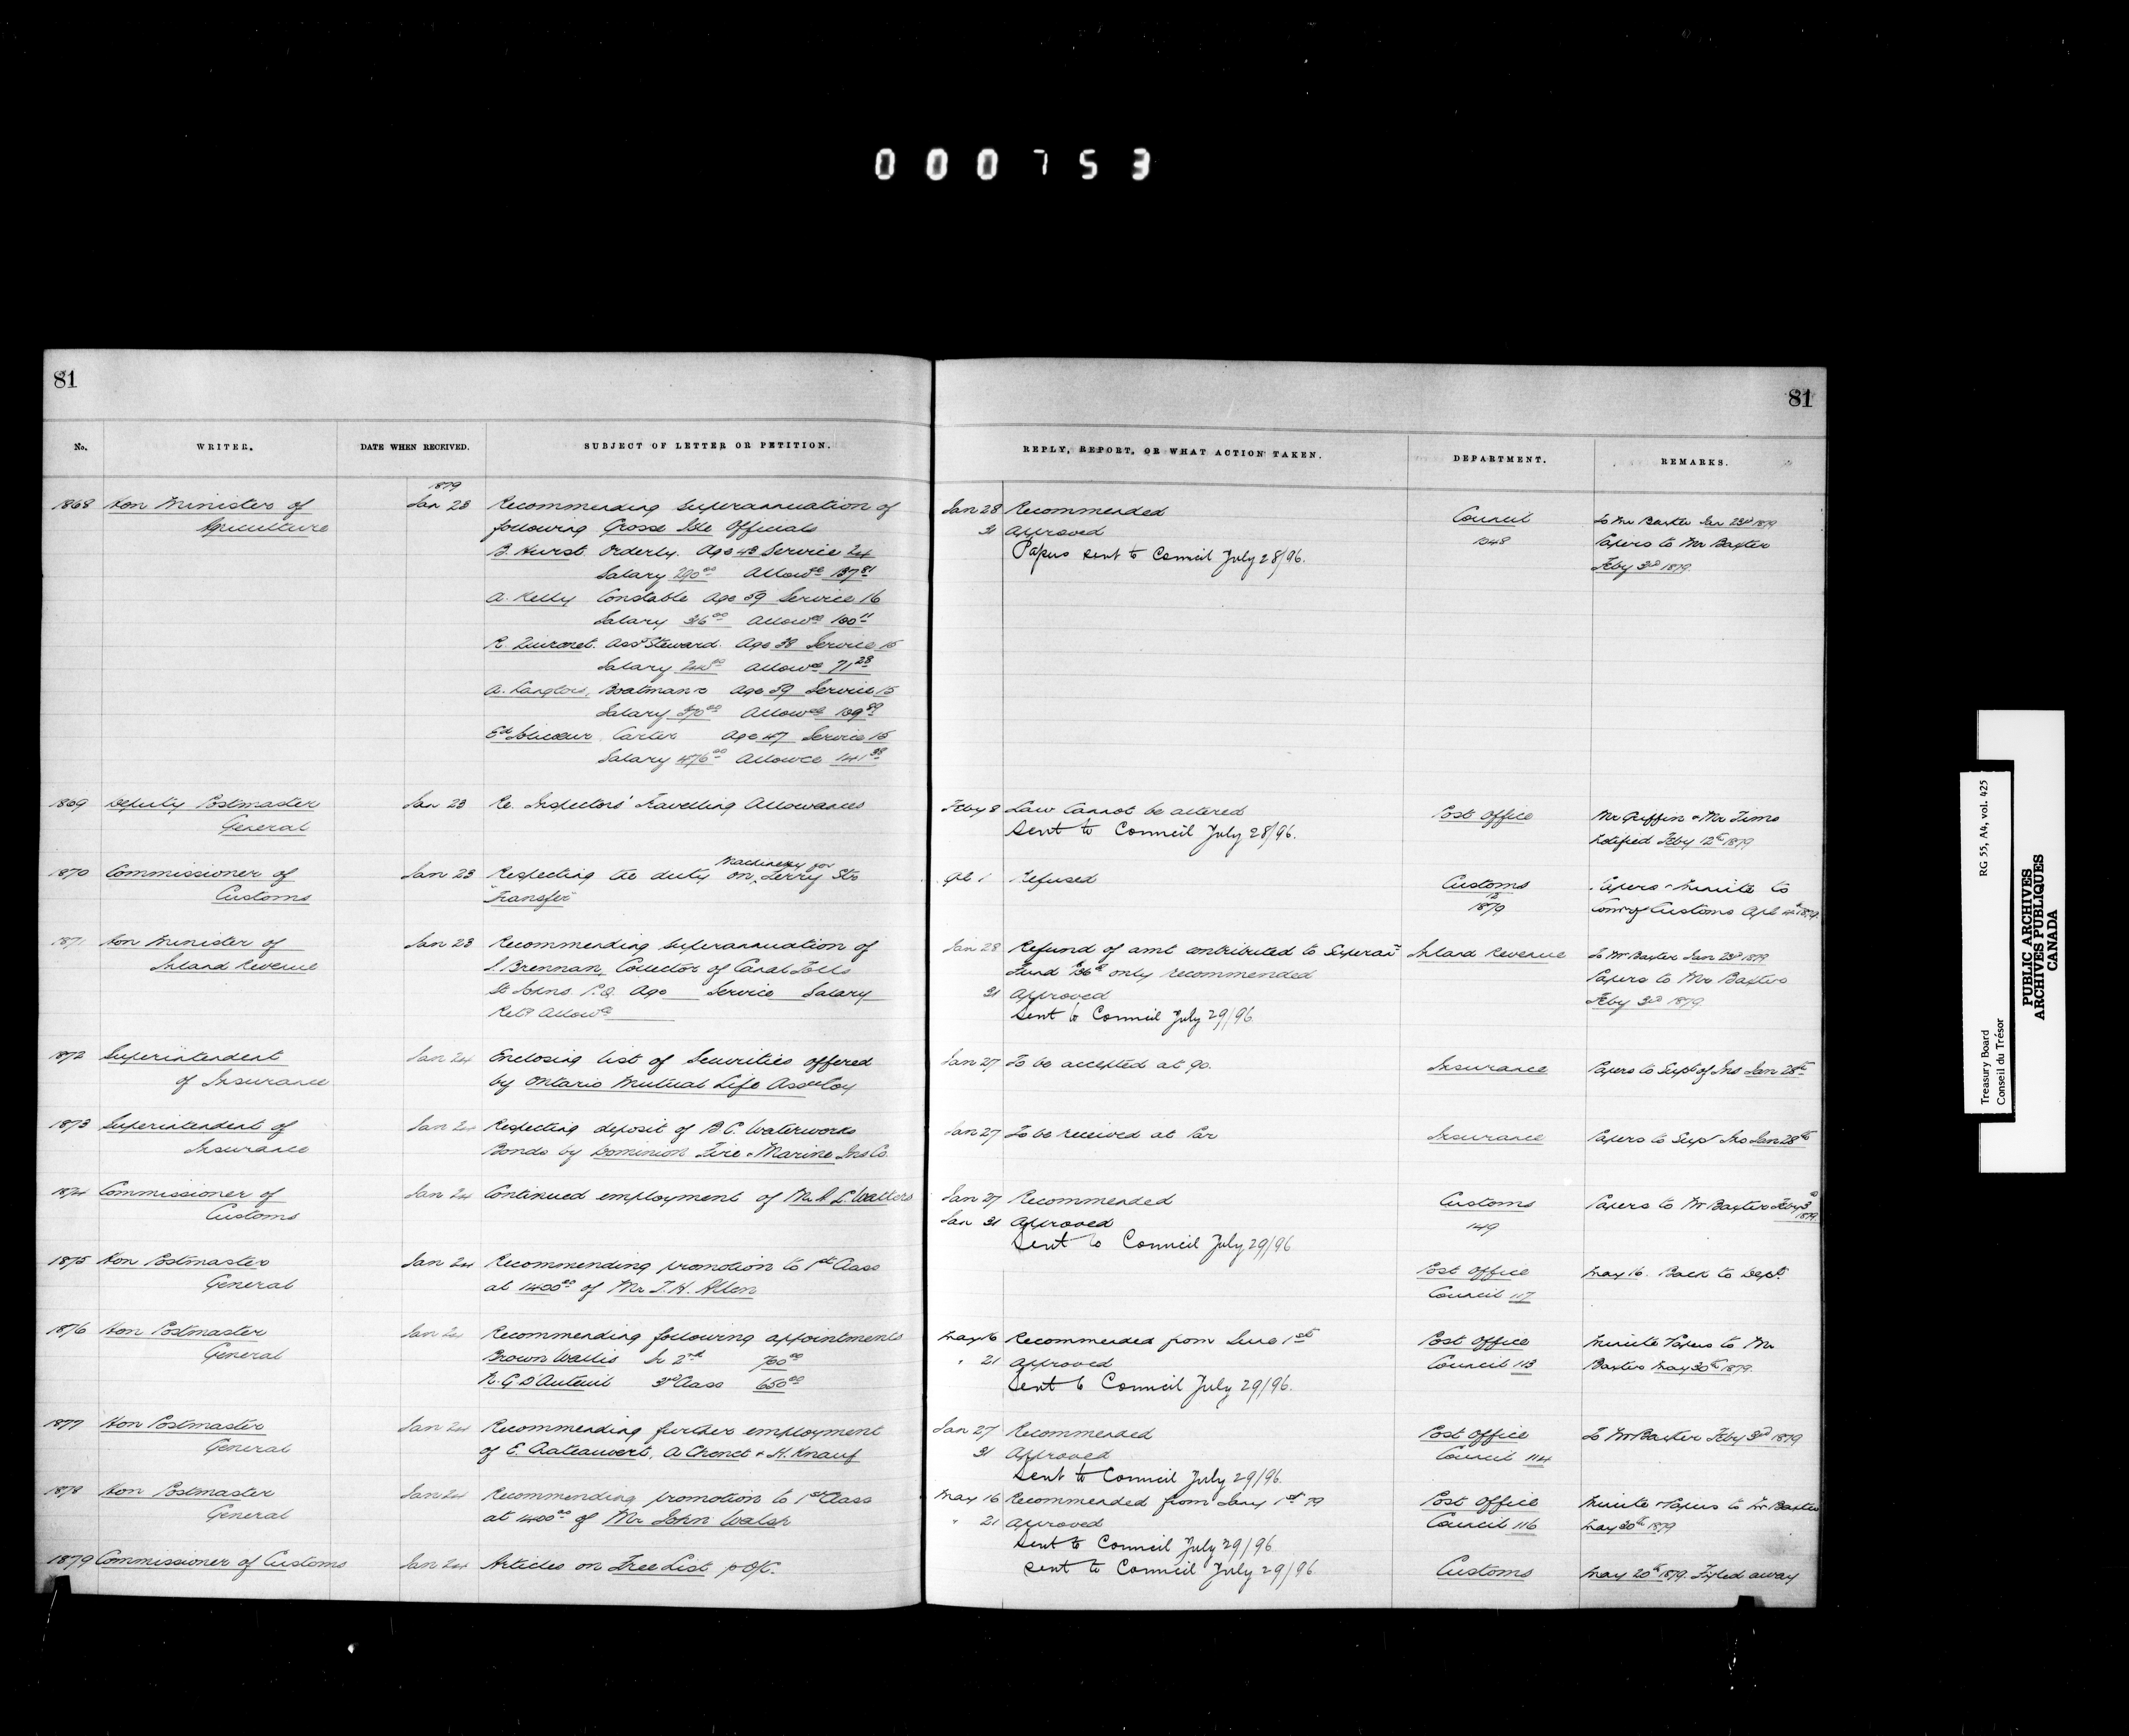 000753
81
81
No.
WRITER.
DATE WHEN RECEIVED.
SUBJECT OF LETTER OR PETITION.
REPLY, REPORT, OR WHAT ACTION TAKEN.
DEPARTMENT.
REMARKS.
1879
1868 Hon Minister of Jan 23 Recommending superannuation of Jan 28 Recommended Council To Mr Baxter Jan 23rd 1879
Agriculture following Grosse Isle Officials 31 Approved Papers to Mr Baxter
B. Hurst. Orderly. Age 43 Service 24 Papers sent to Council July 28/96. Feby 3rd 1879.
Salary 290 00 Allowce 137 81
A. Kelly Constable Age 59 Service 16
Salary Allowce 100 11
Asst Steward. Age 38 Service 15
Salary Allowce 71 28
A. Langlois, Boatman Age 59 Service 15
Salary 370 00 Allowce 109 89
Carter Age 47 Service 15
Salary 476 00 Allowce 141 38
1869 Deputy Postmaster Jan 23 Re. Inspectors' Travelling Allowances Feby 8 Law Cannot be altered Post Office Mr Griffin & Mr Tims
General Sent to Council July 28/96. notified Feby 12th 1879
Machinery for
1870 Commissioner of Jan 23 Respecting the duty on Ferry Str Apl 1 Refused Customs Papers & Minute to
Customs "Transfer" 12 1879 Comr of Customs Apl 4th 1879.
1871 Hon Minister of Jan 23 Recommending superannuation of Jan 28 Refund of amt contributed to Superan Inland Revenue To Mr Baxter Jan 23rd 1879
Inland Revenue Brennan, Collector of Canal Tolls Fund only recommended Papers to Mr Baxter
St Johns. P.Q. Age Service Salary 31 Approved Feby 3rd 1879
Allowce Sent to Council July 29/96.
1872 Superintendent Jan 24 Enclosing list of Securities offered Jan 27 To be accepted at 90. Insurance Papers to Supt of Ins Jan 28th
of Insurance by Ontario Mutual Life Assce Coy
1873 Superintendent of Jan 24 Respecting deposit of B C. Waterworks Jan 27 To be received at Par Insurance Papers to Supt Ins Jan 28th
Insurance Bonds by Dominion Fire & Marine Ins Co.
1874 Commissioner of Jan 24 Continued employment of Mr Walters Jan 27 Recommended Customs Papers to Mr Baxter Feby 3rd 1879
Customs Jan 31 Approved 149
Sent to Council July 29/96
1875 Hon Postmaster Jan 24 Recommending promotion to 1st Class Post Office May 16. Back to Dept.
General at 1400 00 of Mr T. H. Allen Council 117
1876 Hon Postmaster Jan 24 Recommending following appointments May 16 Recommended from June 1st Post Office Minute & Papers to Mr
General Brown Wallis Jr 2nd 700 00 " 21 Approved Council 113 Baxter May 30th 1879.
N. G D'Auteuil 3rd Class 650 00 Sent to Council July 29/96.
1877 Hon Postmaster Jan 24 Recommending further employment Jan 27 Recommended Post Office To Mr Baxter Feby 3rd 1879
General of E. A & H. Knauf 31 Approved Council 114
Sent to Council July 29/96.
1878 Hon Postmaster Jan 24 Recommending promotion to 1st Class May 16 Recommended from Jany 1st 79 Post Office Minute & Papers to Mr Baxter
General at 1400 00 of Mr John Walsh " 21 Approved Council 116 May 30th 1879
Sent to Council July 29/96
1879 Commissioner of Customs Jan 24 Articles on Free List p O/C. sent to Council July 29/96 Customs May 20th 1879. Fyled away
Treasury Board RG 55, A4, vol. 425
Conseil du Trésor
PUBLIC ARCHIVES
ARCHIVES PUBLIQUES
CANADA